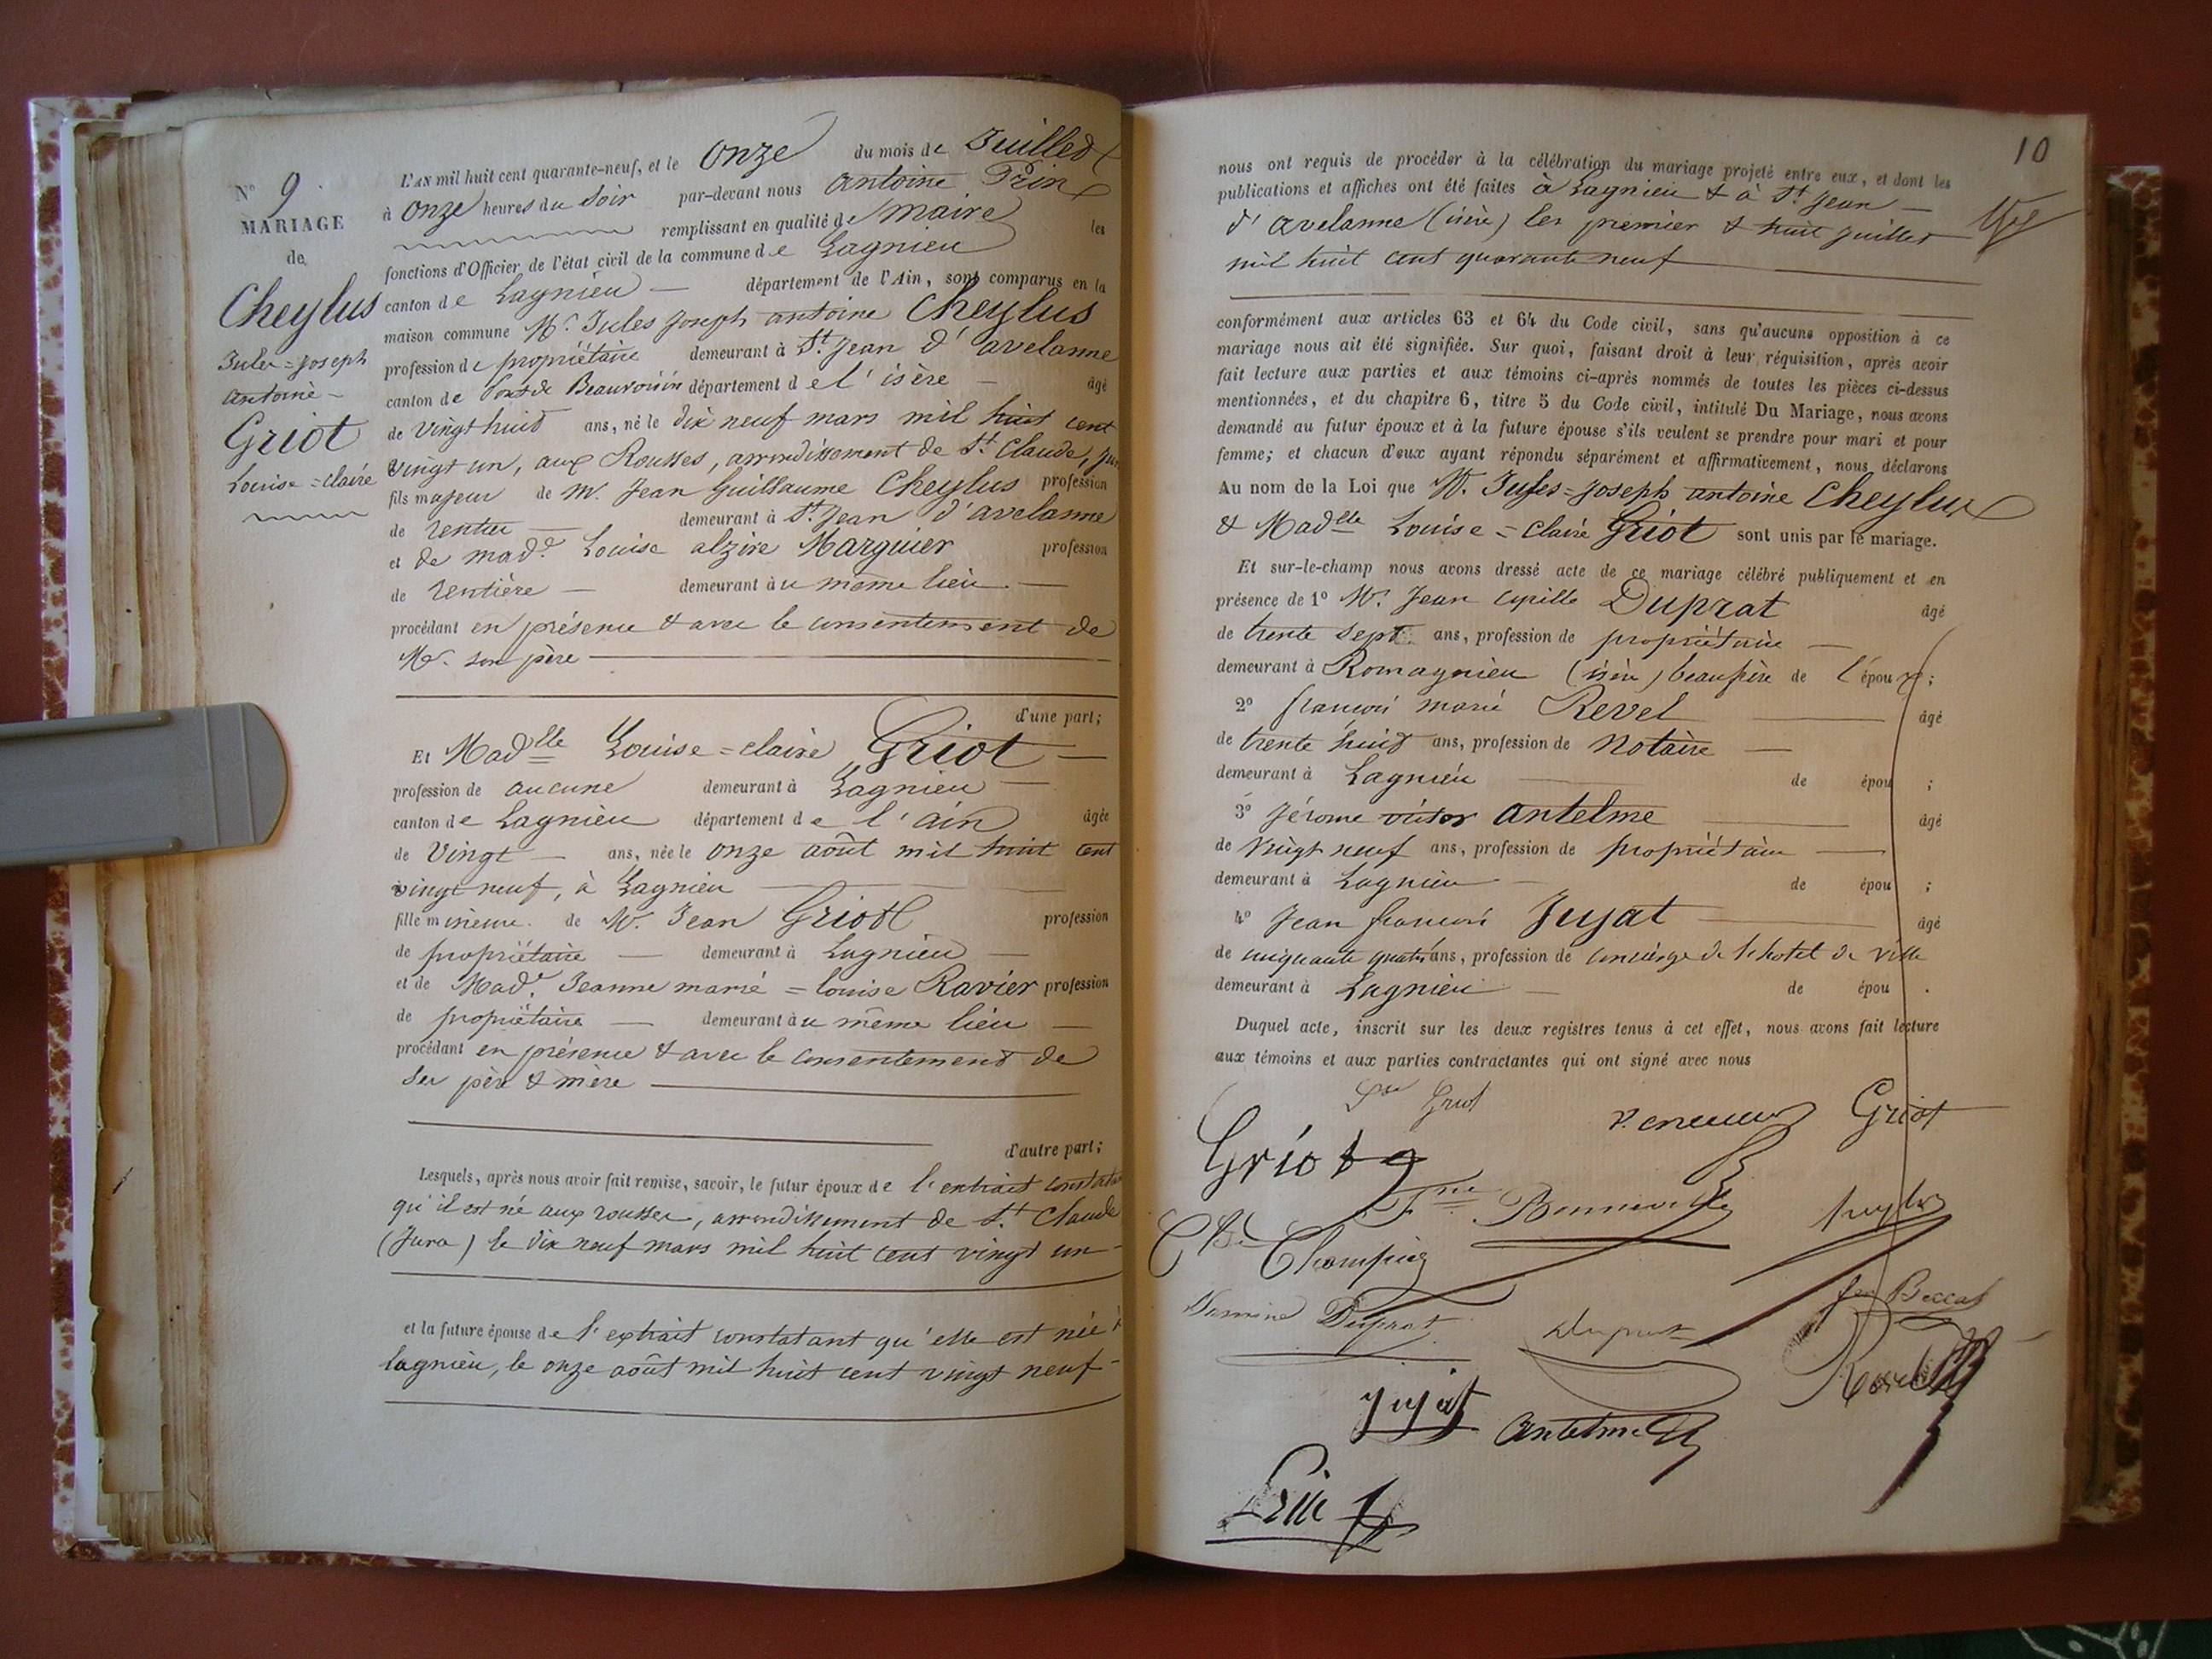 N° 9
MARIAGE
de
Cheylus
Jules=Joseph
antoine
Griot
Louise=claire
L'AN mil huit cent quarante-neuf, et le onze du mois de Juillet
à onze heures du soir par-devant nous antoine Prin
remplissant en qualité de maire les
fonctions d'Officier de l'état civil de la commune de Lagnieu
canton de Lagnieu département de l'Ain, sont comparus en la
maison commune Mr. Jules Joseph antoine Cheylus
profession de propriétaire demeurant à St. Jean d'avelanne
canton de Pont de Beauvoisin département de l'isère âgé
de vingt huit ans, né le dix neuf mars mil huit cent
vingt un, aux Rousses, arrondissement de St. Claude, Jura
fils majeur de Mr. Jean Guillaume Cheylus profession
de rentier demeurant à St. Jean d'avelanne
et de made. Louise alzire Marguier profession
de rentière demeurant au même lieu
procédant en présence & avec le consentement de
Mr. son père
d'une part;
Et Madlle Louise=claire Griot
profession de aucune demeurant à Lagnieu
canton de Lagnieu département de l'ain âgée
de vingt ans, née le onze août mil huit cent
vingt neuf, à Lagnieu
fille mineure de Mr. Jean Griot profession
de propriétaire demeurant à Lagnieu
et de Made. Jeanne marie=louise Ravier profession
de propriétaire demeurant au même lieu
procédant en présence & avec le consentement de
ses père & mère
d'autre part;
Lesquels, après nous avoir fait remise, savoir, le futur époux de l'extrait constatant
qu'il est né aux rousses, arrondissement de St. Claude
(Jura) le dix neuf mars mil huit cent vingt un
et la future épouse de l'extrait constatant qu'elle est née à
lagnieu, le onze août mil huit cent vingt neuf
10
nous ont requis de procéder à la célébration du mariage projeté entre eux, et dont les
publications et affiches ont été faites à Lagnieu & à St. Jean
d'avelanne (isère) les premier & huit juillet
mil huit cent quarante neuf
conformément aux articles 63 et 64 du Code civil, sans qu'aucune opposition à ce
mariage nous ait été signifiée. Sur quoi, faisant droit à leur réquisition, après avoir
fait lecture aux parties et aux témoins ci-après nommés de toutes les pièces ci-dessus
mentionnées, et du chapitre 6, titre 5 du Code civil, intitulé Du Mariage, nous avons
demandé au futur époux et à la future épouse s'ils veulent se prendre pour mari et pour
femme; et chacun d'eux ayant répondu séparément et affirmativement, nous déclarons
Au nom de la Loi que Mr. Jules=Joseph antoine Cheylus
& Madlle Louise=claire Griot sont unis par le mariage.
Et sur-le-champ nous avons dressé acte de ce mariage célébré publiquement et en
présence de 1° Mr. Jean cyrille Duprat âgé
de trente sept ans, profession de propriétaire
demeurant à Romagnieu (isère) beaufrère de l'époux;
2° françois marie Revel âgé
de trente huit ans, profession de notaire
demeurant à Lagnieu de épou ;
3° Jérome victor antelme âgé
de vingt neuf ans, profession de propriétaire
demeurant à Lagnieu de épou ;
4° Jean françois Jujat âgé
de cinquante quatre ans, profession de concierge de l'hotel de ville
demeurant à Lagnieu de épou .
Duquel acte, inscrit sur les deux registres tenus à cet effet, nous avons fait lecture
aux témoins et aux parties contractantes qui ont signé avec nous
Griot
Griot
Griot
Bonneville
Duprat
Duprat
Jujat
Antelme
Revel
Prin